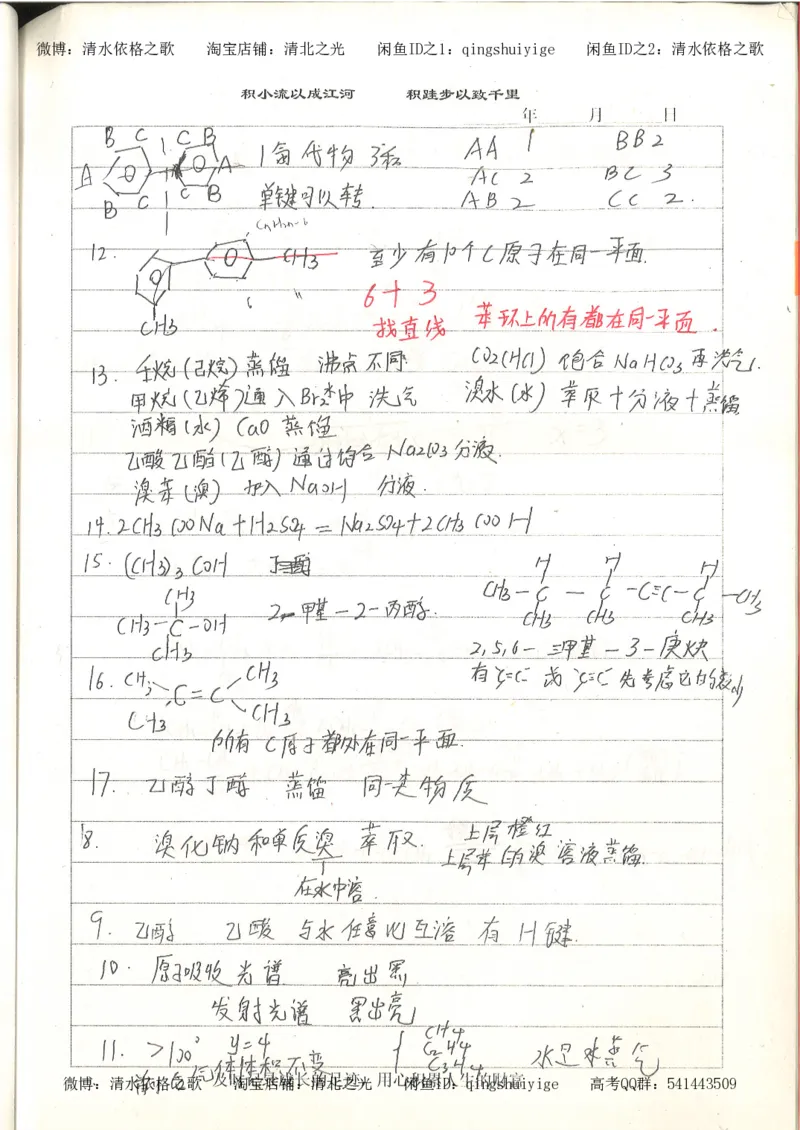 微博：清水依格之歌 淘宝店铺：清北之光 闲鱼ID之1：qingshuiyige 闲鱼ID之2：清水依格之歌
积小流以成江河 积跬步以致千里
年 月 日
B C 1 C B
A A 1氯代物 3种 AA 1 BB 2
B C C B 单键可以转. AC 2 BC 3
AB 2 CC 2.
CnH2n-6
12. CH3 至少有10个C原子在同一平面.
6+3
CH3 找直线 苯环上的有都在同一平面.
13. 壬烷(己烷) 蒸馏 沸点不同 CO2(HCl) 饱合NaHCO3 再洗气.
甲烷(乙烯)通入Br2水中 洗气 溴水(水) 萃取+分液+蒸馏
酒精(水) CaO 蒸馏
乙酸乙酯(乙醇) 通过饱合Na2CO3分液.
溴苯(溴) 加入NaOH 分液.
14. 2CH3COONa+H2SO4=Na2SO4+2CH3COOH
15. (CH3)3COH 丁醇
CH3 H H H
CH3-C-OH 2-甲基-2-丙醇. CH3-C-C-C≡C-C-CH3
CH3 CH3 CH3 CH3
2,5,6-三甲基-3-庚炔
16. CH3 C=C CH3
CH3 CH3
所有C原子都处在同一平面.
17. 乙醇丁醇 蒸馏 同一类物质
8. 溴化钠和单质溴 萃取. 上层橙红
上层苯的溴溶液蒸馏.
在水中溶.
9. 乙醇 乙酸 与水任意比互溶 有H键.
10. 原子吸收光谱 亮出黑
发射光谱 黑出亮
11. >100° y=4 CH4 C2H4 C3H4 水是水蒸气
气体体积不变
微博：清水依格之歌 淘宝店铺：清北之光 闲鱼ID：qingshuiyige 高考QQ群：541443509